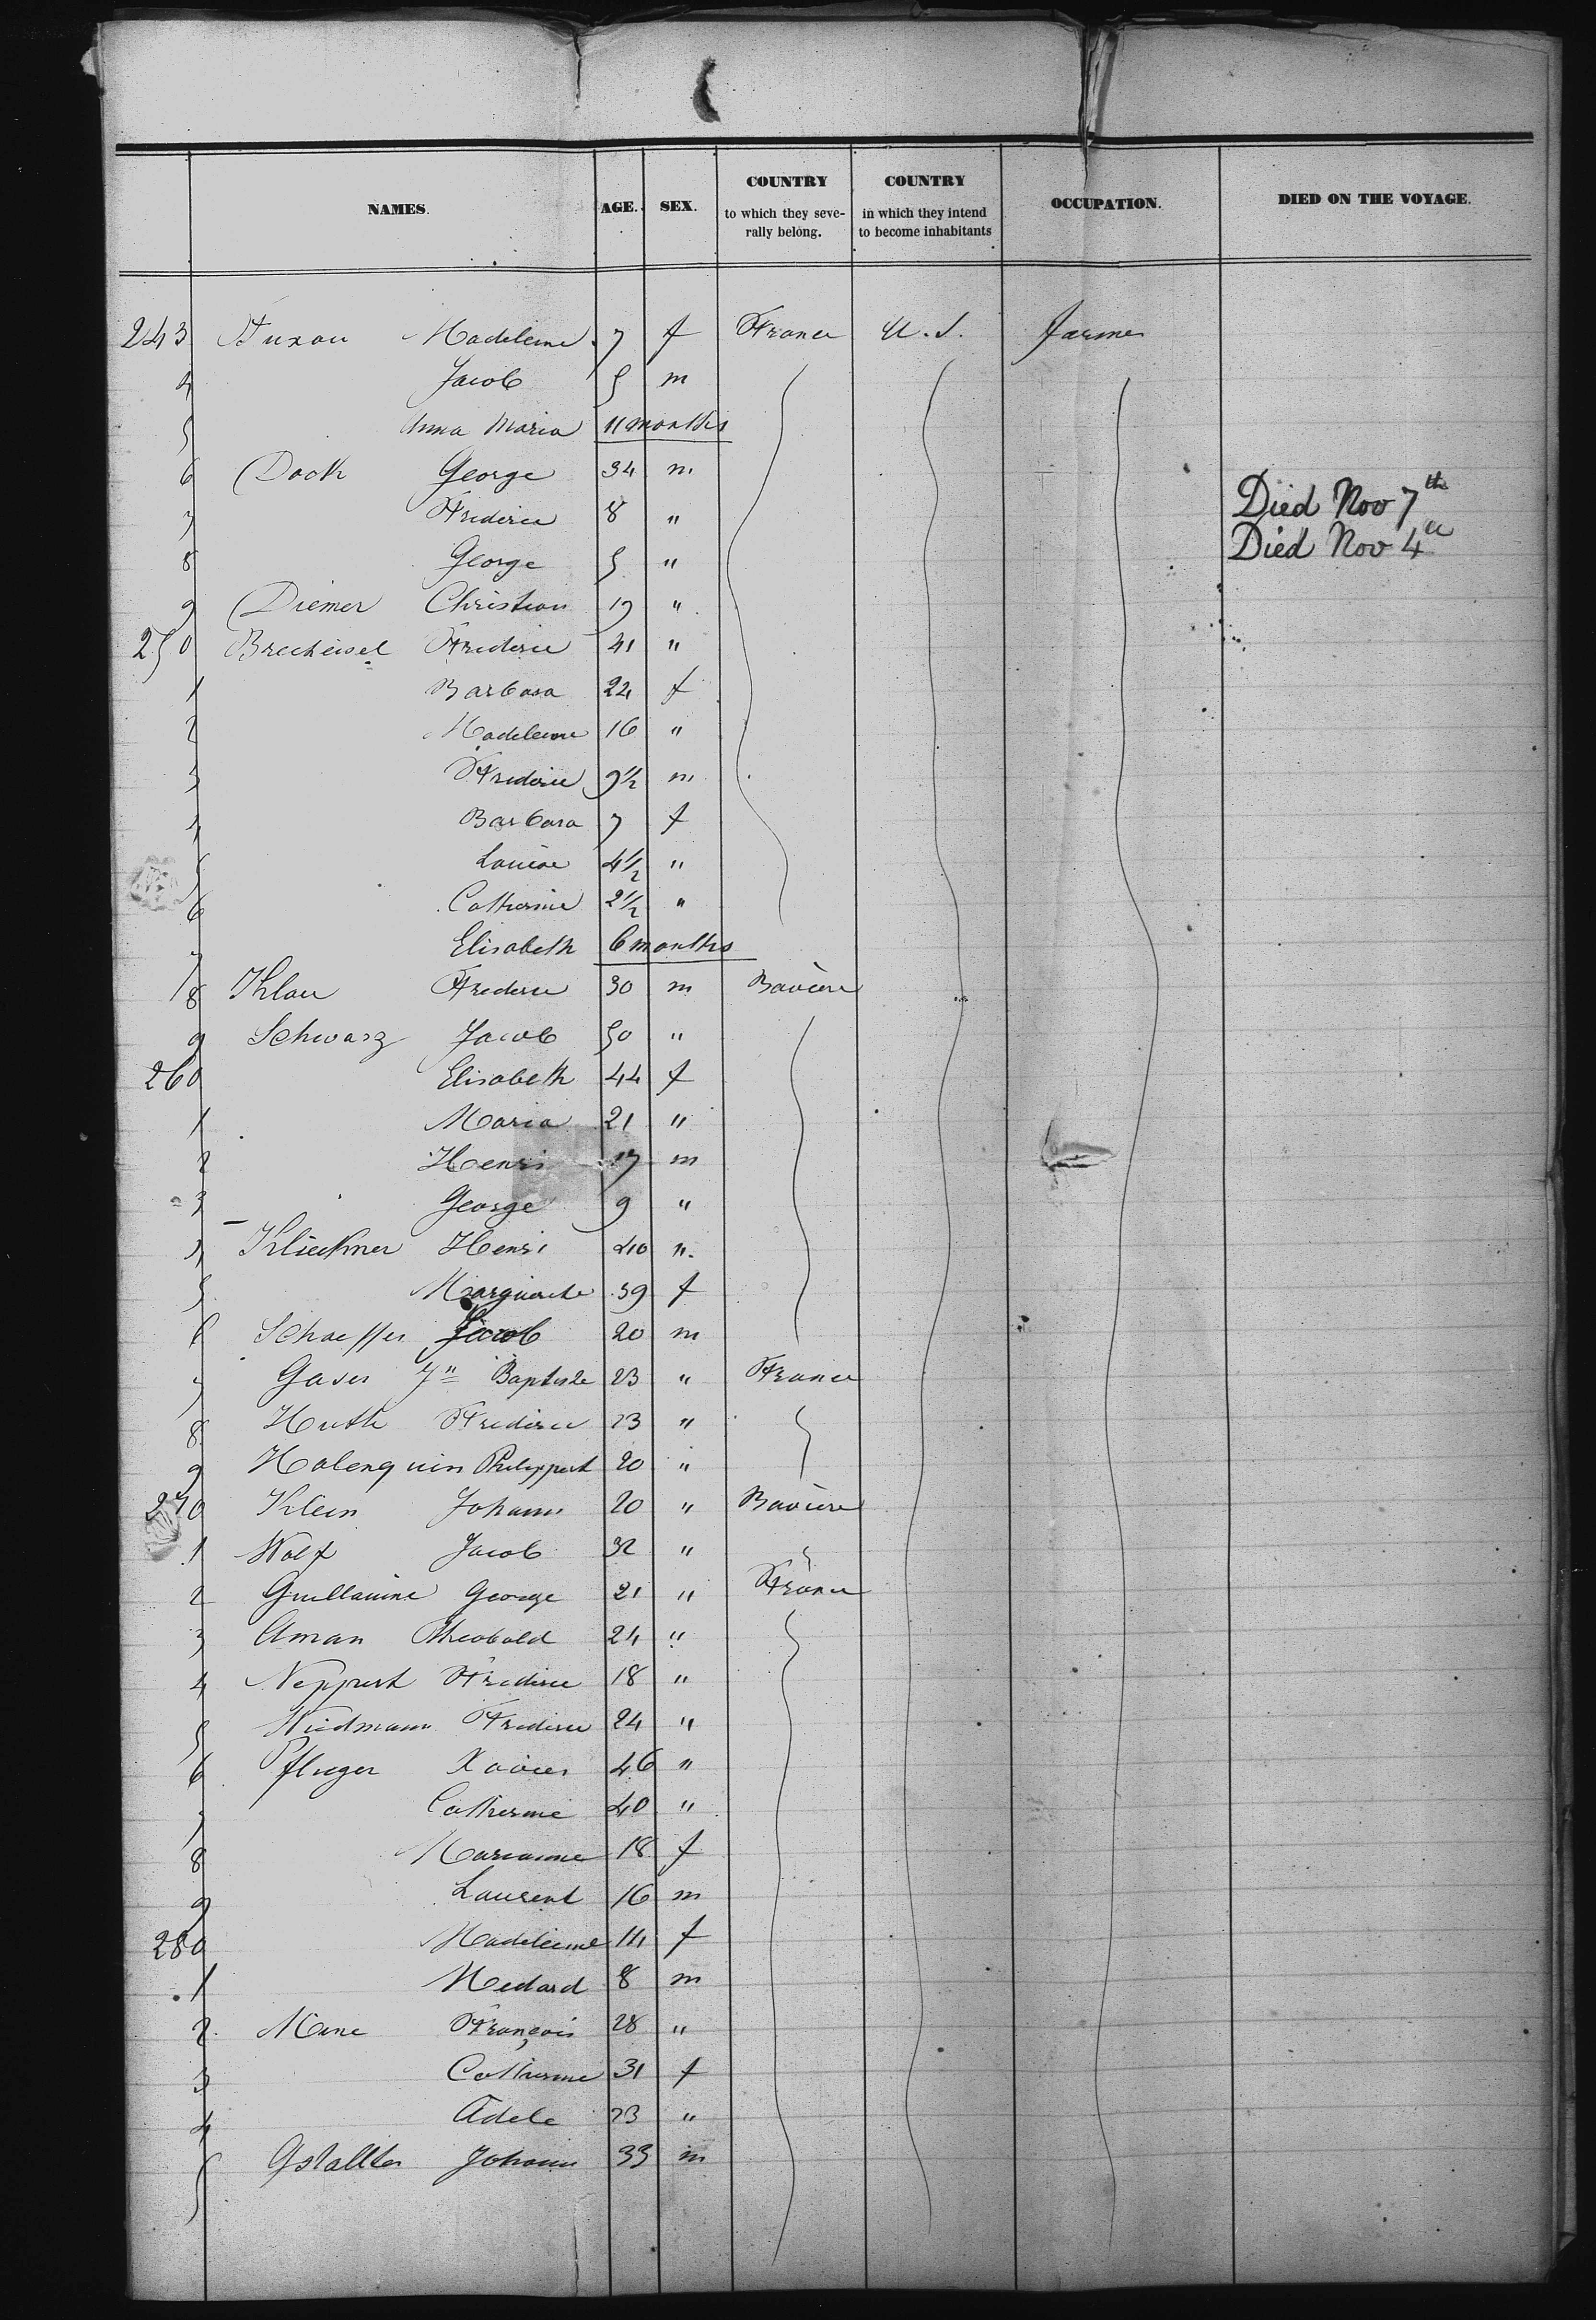 NAMES. AGE. SEX. COUNTRY to which they seve- rally belong. COUNTRY in which they intend to become inhabitants OCCUPATION. DIED ON THE VOYAGE.
243 Madeleine 7 f France U.S. Farmer
4 Jacob 5 m
5 Anna Maria 11 months
6 Dock George 34 m
7 Frederic 8 " Died Nov 7th
8 George 5 " Died Nov 4th
9 Diemer Christian 19 "
250 Brecheisel Frederic 41 "
1 Barbara 22 f
2 Madeleine 16 "
3 Frederic 9 1/2 m
4 Barbara 7 f
5 Louise 4 1/2 "
6 Catherine 2 1/2 "
7 Elisabeth 6 months
8 Klau Frederic 30 m Bavière
9 Schwarz Jacob 50 "
260 Elisabeth 44 f
1 Maria 21 "
2 Henri 17 m
3 George 9 "
4 Klieckner Henri 40 "
5 Marguerite 39 f
6 Schaeffer Jacob 20 m
7 Gaser Jn Baptiste 23 " France
8 Huth Frederic 23 "
9 Halenquin 20 "
270 Klein Johann 20 " Bavière
1 Wolf Jacob 32 "
2 Guillaume George 21 " France
3 Aman Theobald 24 "
4 Neppert Frederic 18 "
5 Wiedmann Frederic 24 "
6 Pflieger Xavier 46 "
7 Catherine 40 "
8 Marianne 18 f
9 Laurent 16 m
280 Madeleine 14 f
1 Medard 8 m
2 François 28 "
3 Catherine 31 f
4 Adele 23 "
5 Gstallter Johann 33 m